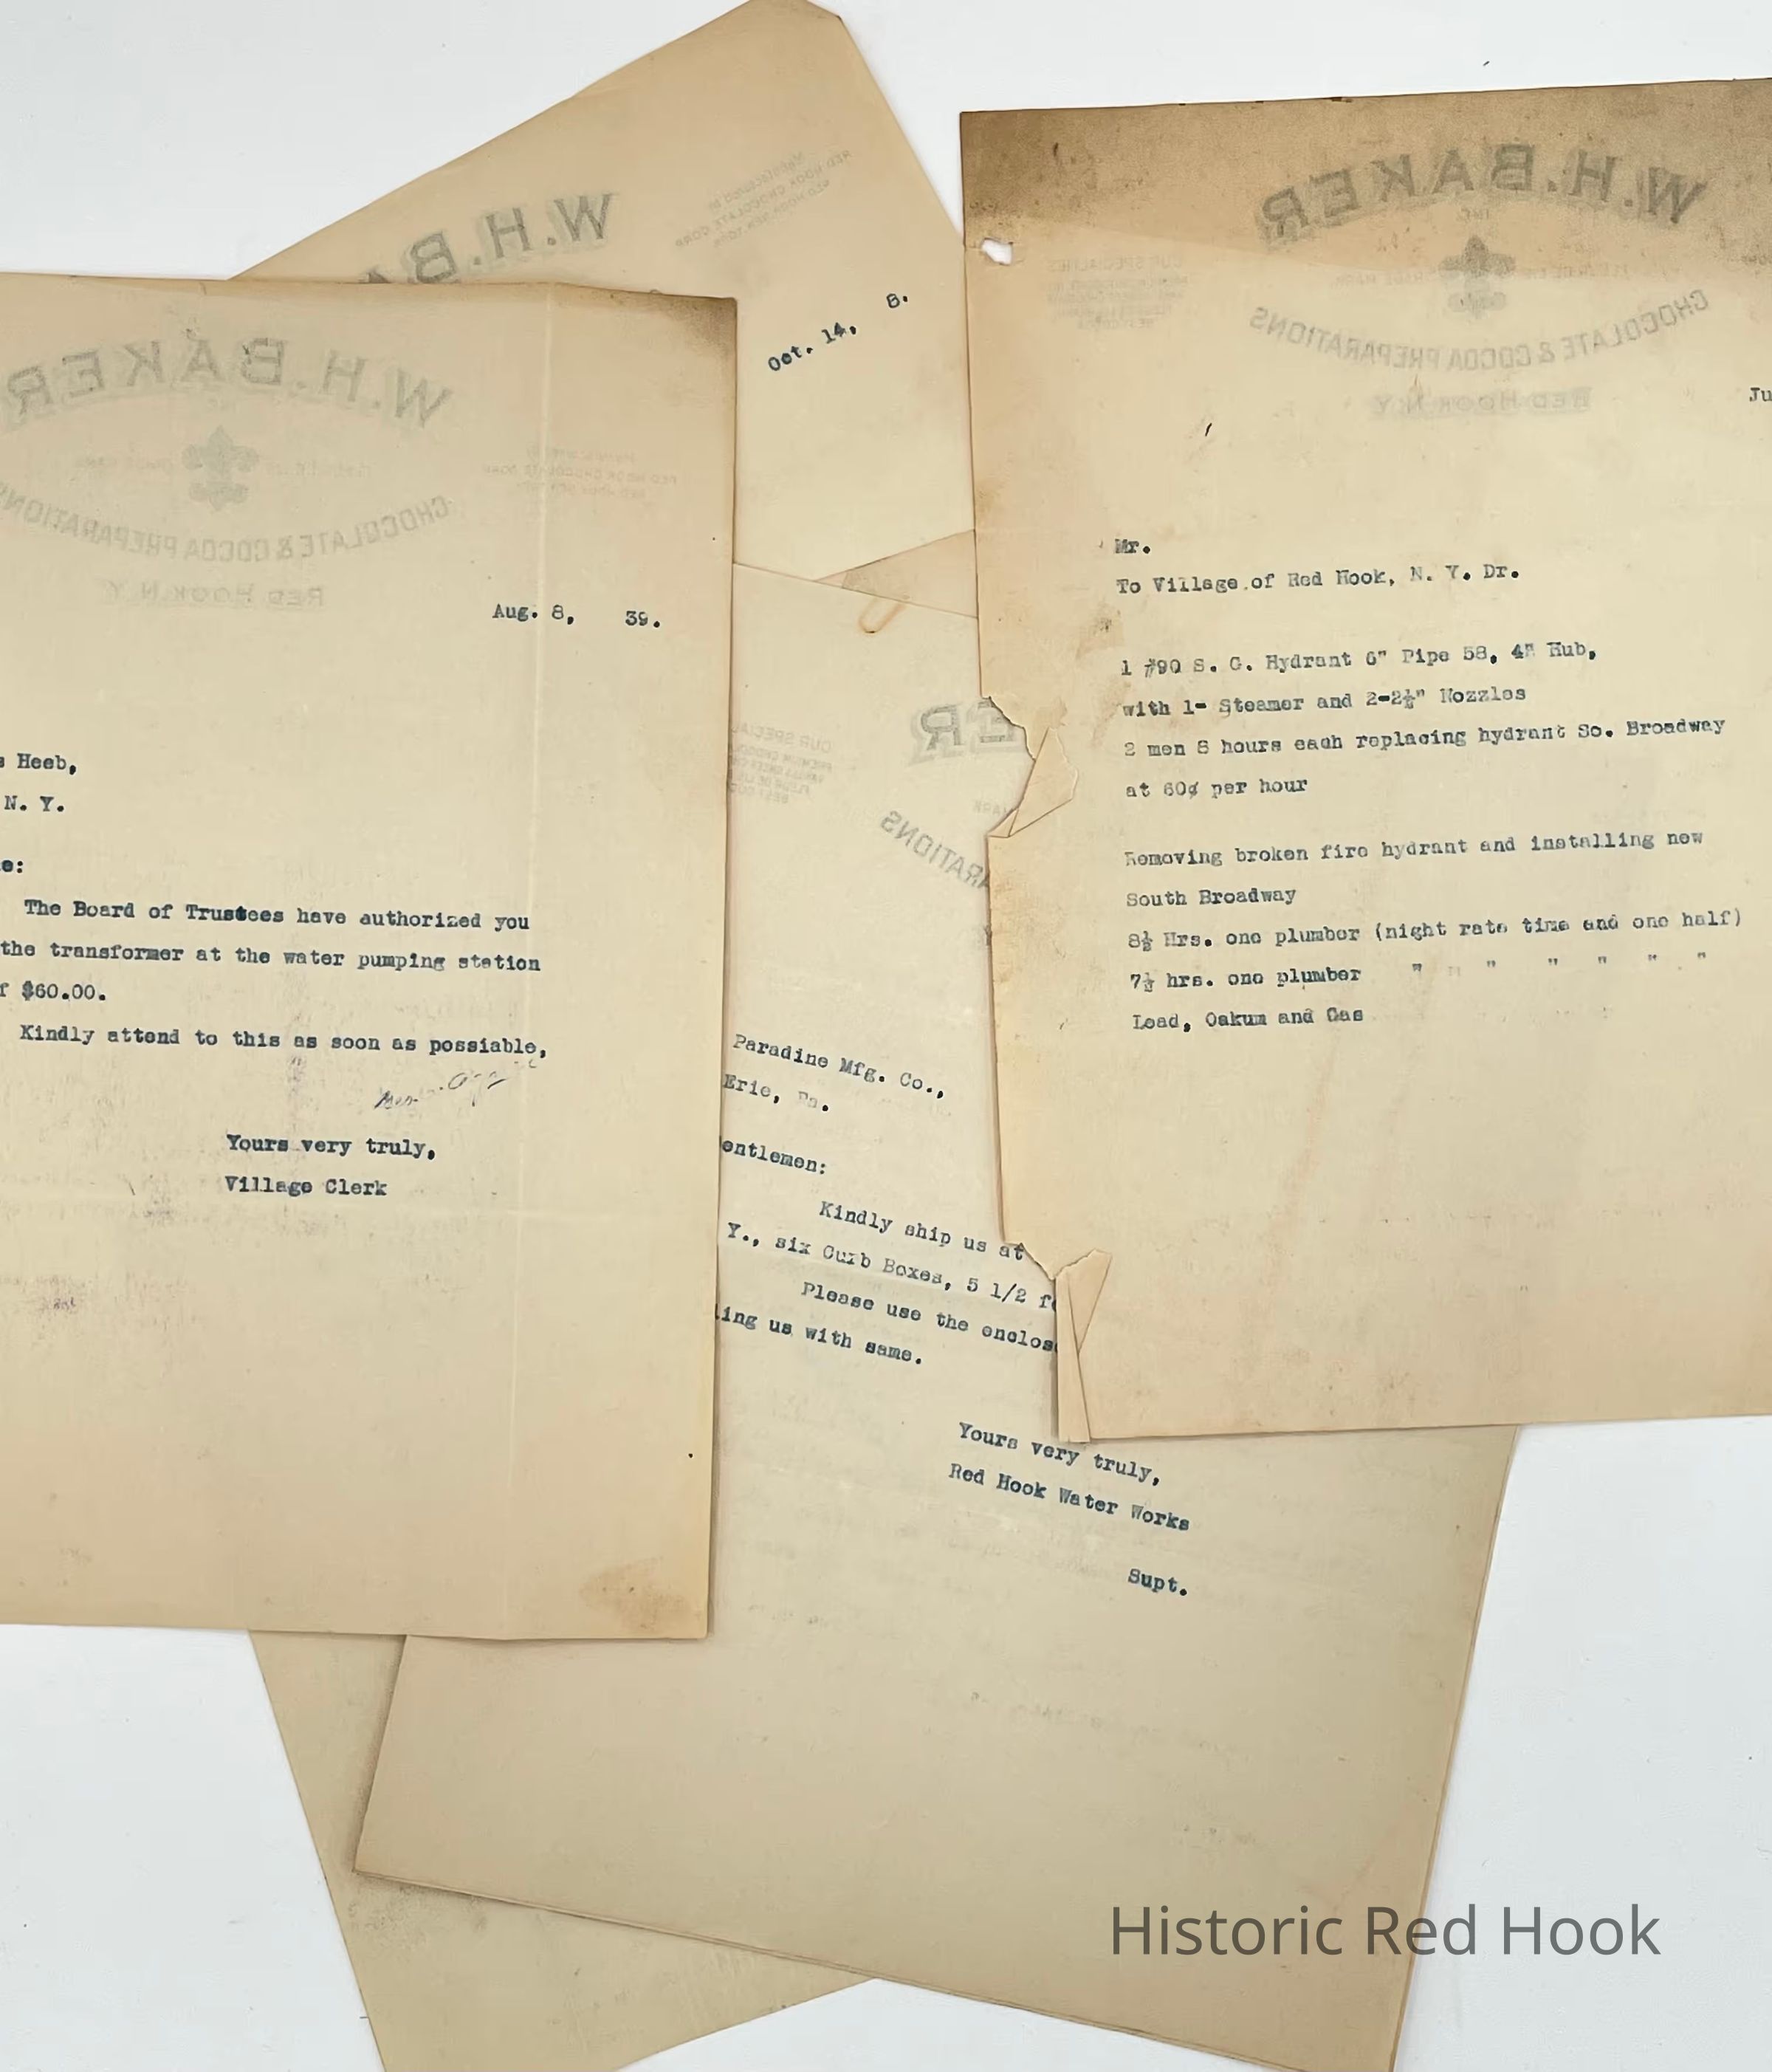 W.H.BAKER
CHOCOLATE & COCOA PREPARATIONS
RED HOOK N Y
Aug. 8, 39.
Heeb,
N. Y.
e:
The Board of Trustees have authorized you
the transformer at the water pumping station
$60.00.
Kindly attend to this as soon as possiable,
Yours very truly,
Village Clerk
W.H.BA
Manufactured by
RED HOOK CHOCOLATE CORP
RED HOOK NEW YORK
Oct. 14, 8.
ER
OUR SPECIAL
ARATIONS
Paradine Mfg. Co.,
Erie, Pa.
entlemen:
Kindly ship us at
Y., six Curb Boxes, 5 1/2 f
Please use the enclos
ling us with same.
Yours very truly,
Red Hook Water Works
Supt.
W.H.BAKER
INC
OUR SPECIALTIES
TRADE MARK
CHOCOLATE & COCOA PREPARATIONS
RED HOOK N.Y.
Ju
Mr.
To Village of Red Hook, N. Y. Dr.
1 #90 S. G. Hydrant 6" Pipe 58, 4" Hub,
with 1- Steamer and 2-2½" Nozzles
2 men 8 hours each replacing hydrant So. Broadway
at 60¢ per hour
Removing broken fire hydrant and installing new
South Broadway
8½ Hrs. one plumber (night rate time and one half)
7½ hrs. one plumber " " " " " " "
Lead, Oakum and Gas
Historic Red Hook